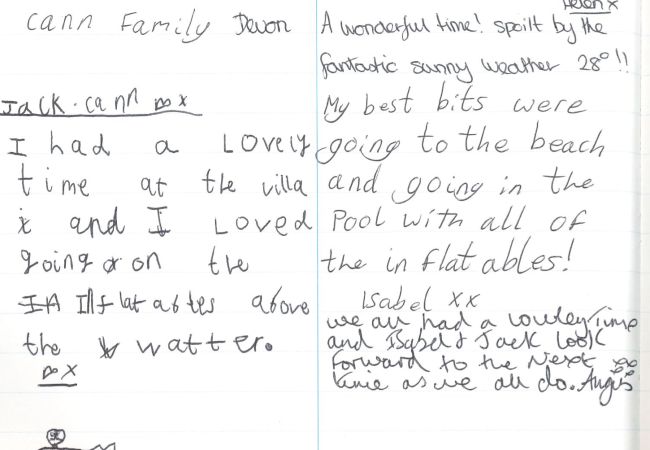 Cann Family Devon
Jack. cann x
I had a Lovely
time at the villa
and I Loved
going on the
Inflatables above
the watter.
x
Helen x
A wonderful time! spoilt by the
fantastic sunny weather 28°!!
My best bits were
going to the beach
and going in the
Pool with all of
the inflatables!
Isabel xx
we all had a lovley Time
and Isabel & Jack look
forward to the Next
time as we all do. Angus